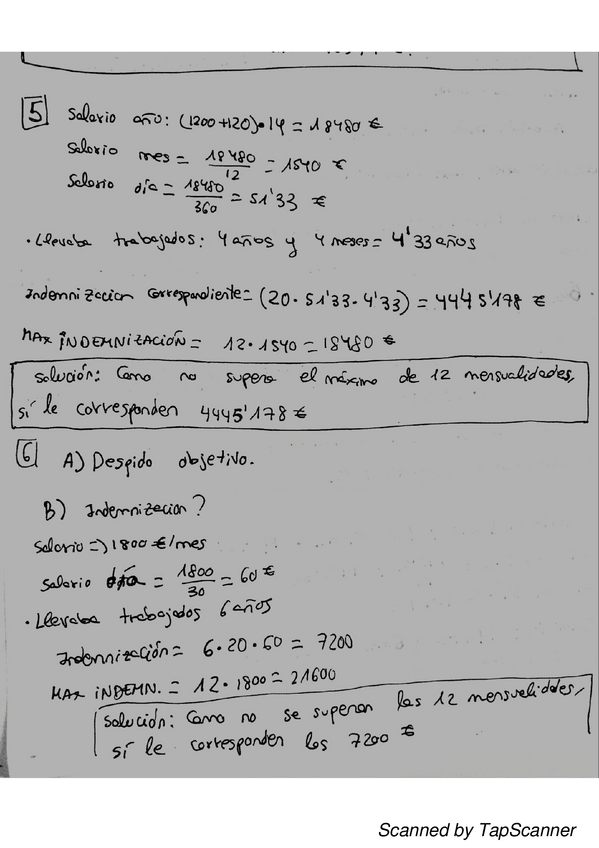 5 Salario año: (1200+120)•14 = 18480 €
Salario mes = 18480/12 = 1540 €
Salario día = 18480/360 = 51'33 €
• Llevaba trabajados: 4 años y 4 meses = 4'33 años
Indemnizacion correspondiente = (20 · 51'33 · 4'33) = 4445'178 €
MAX INDEMNIZACIÓN = 12 · 1540 = 18480 €
Solución: Como no supera el máximo de 12 mensualidades,
sí le corresponden 4445'178 €
6 A) Despido objetivo.
B) Indemnizacion?
Salario => 1800 €/mes
Salario día = 1800/30 = 60 €
• Llevaba trabajados 6 años
Indemnización = 6 · 20 · 60 = 7200
MAX INDEMN. = 12 · 1800 = 21600
Solución: Como no se superan las 12 mensualidades,
sí le corresponden los 7200 €
Scanned by TapScanner